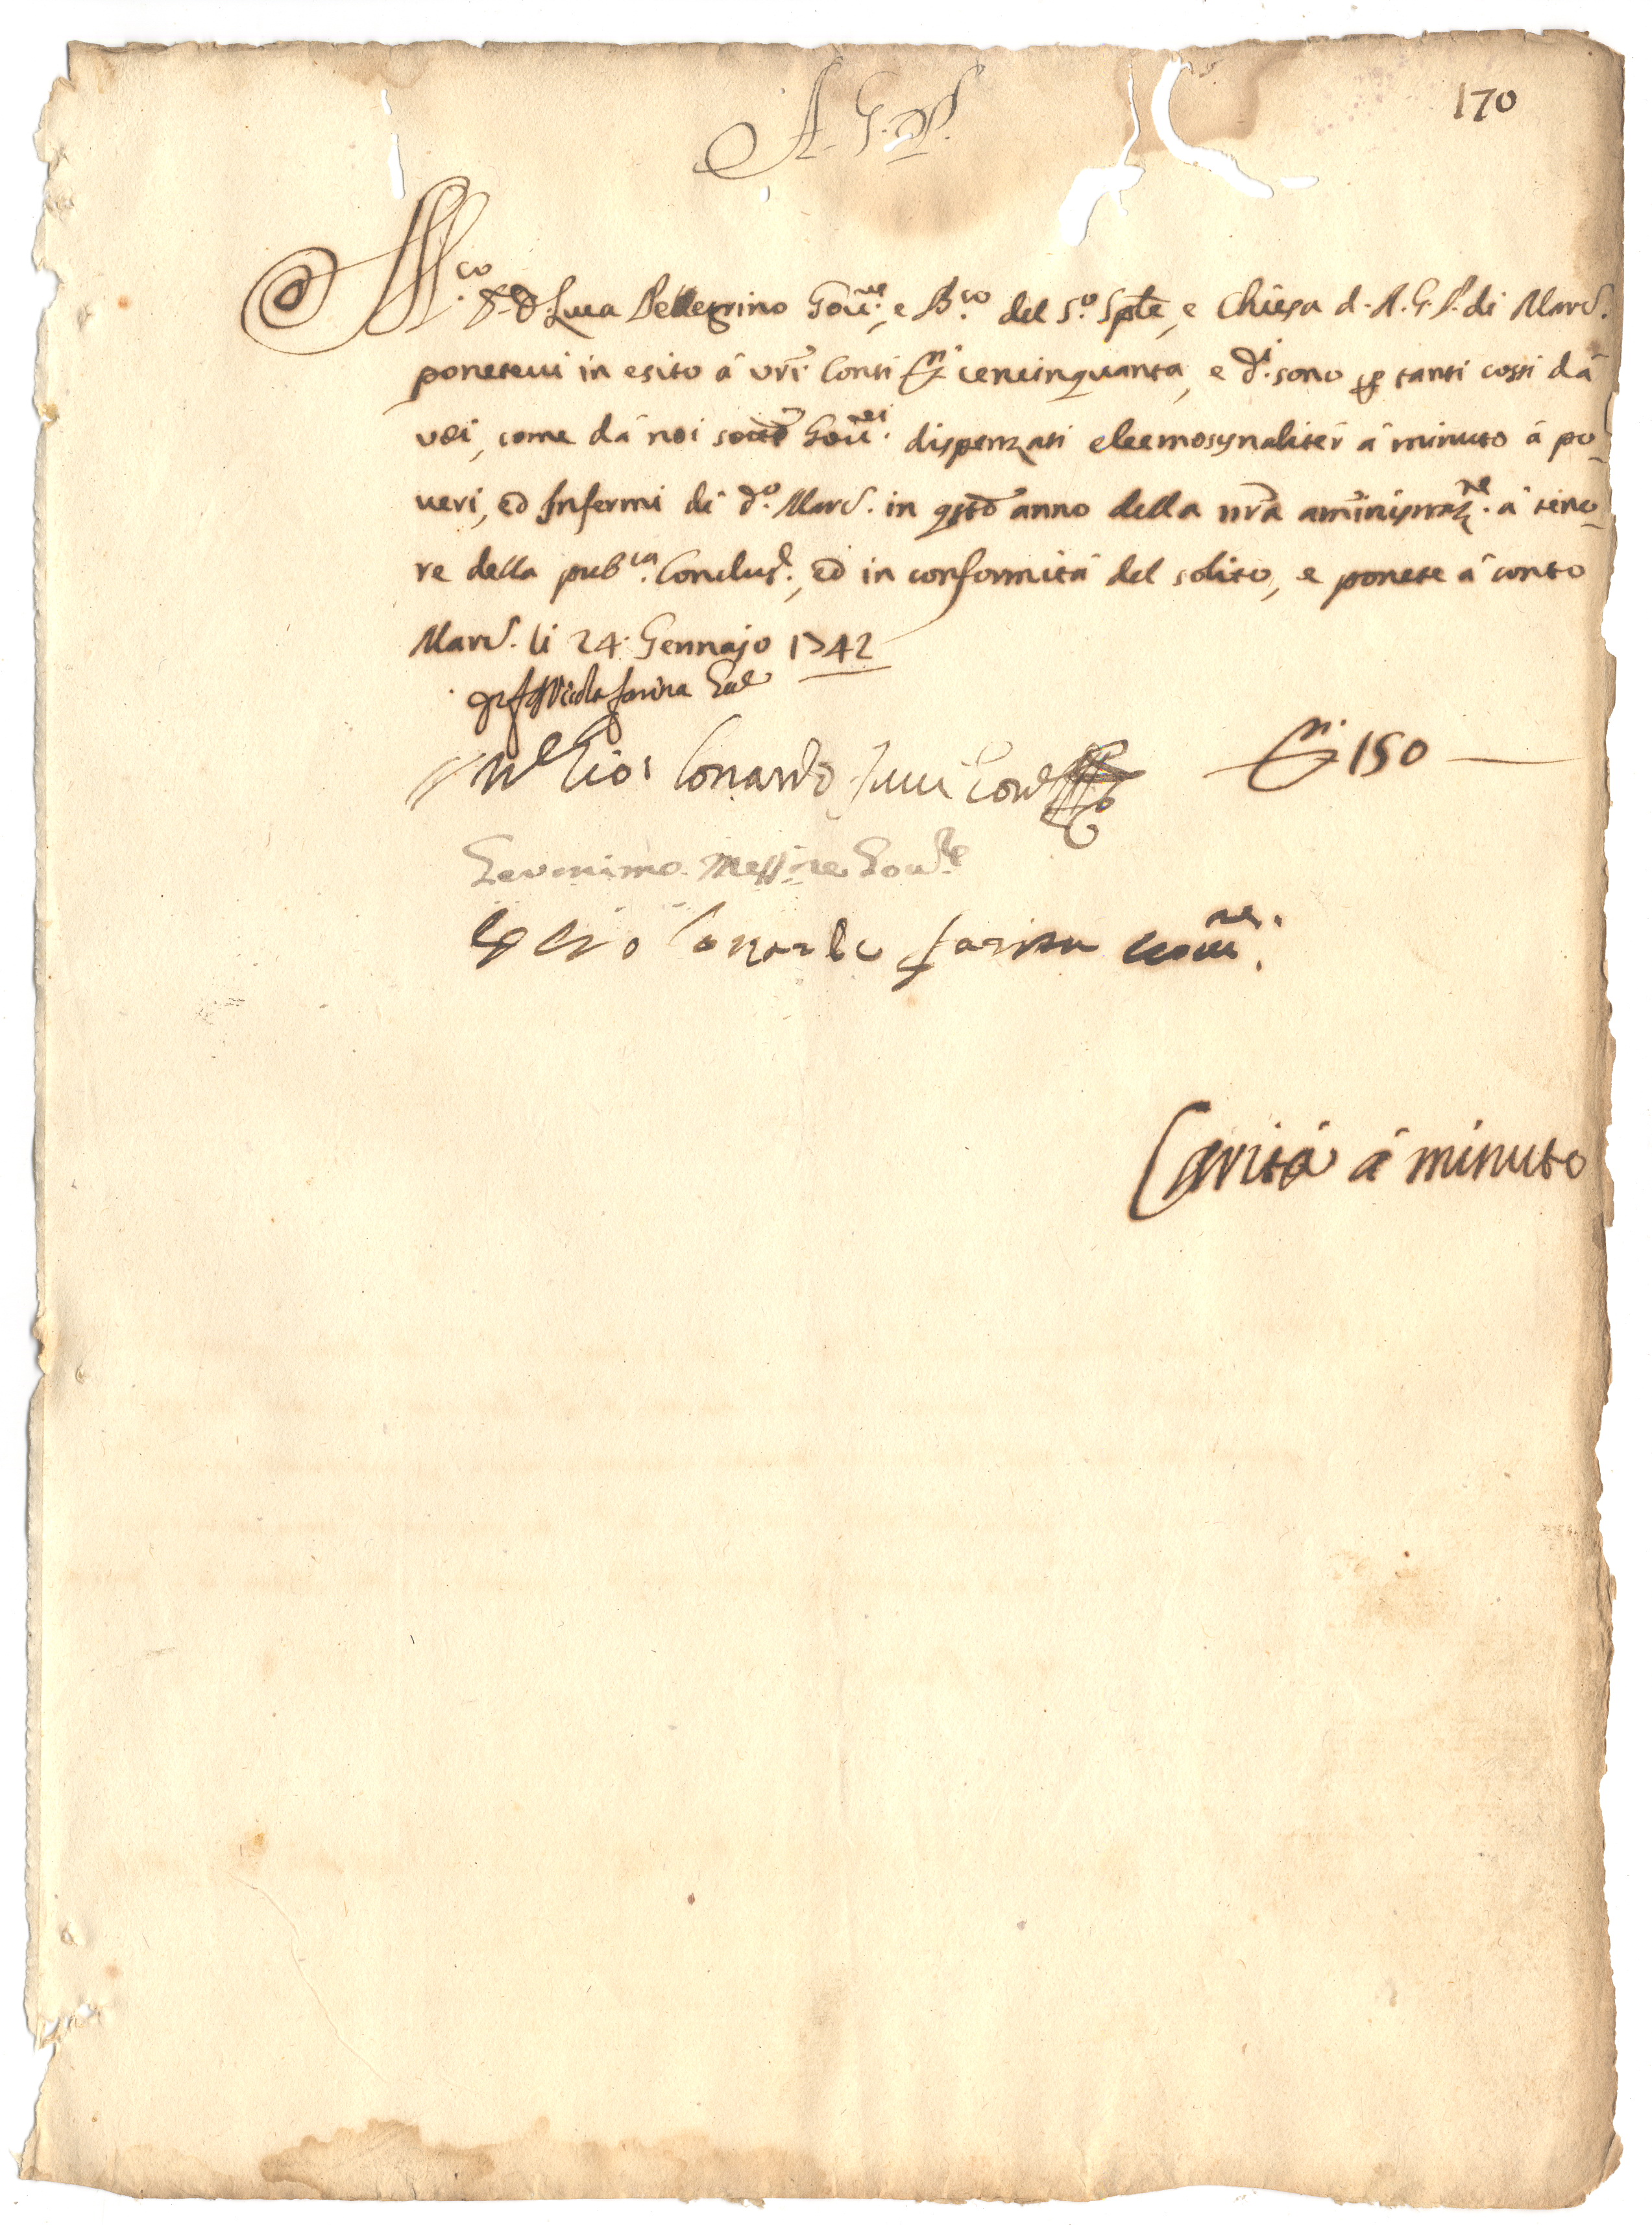 170
A. G. P.
M.co S.r D. Luca Pellegrino Gov.re, e B.co del S.o Sple, e Chiesa d. A. G. P. di Marc.
ponetevi in esito á vri Conti D.ni cencinquanta, e d.i sono per tanti cossi dá
voi, come dá noi sotto Gov.ri dispenzati eleemosynalitér á minuto á po-
veri, ed Infermi di d.o Marc. in qsto anno della nra aministraz.ne á teno-
re della pub.ca Conclus.e, ed in conformitá del solito, e ponete á conto
Marc. li 24 Gennajo 1742
Nicola farina
Conardo D.ni 150
Geronimo Messre Gov.re
Conardo farina Gov.re
Caritá á minuto